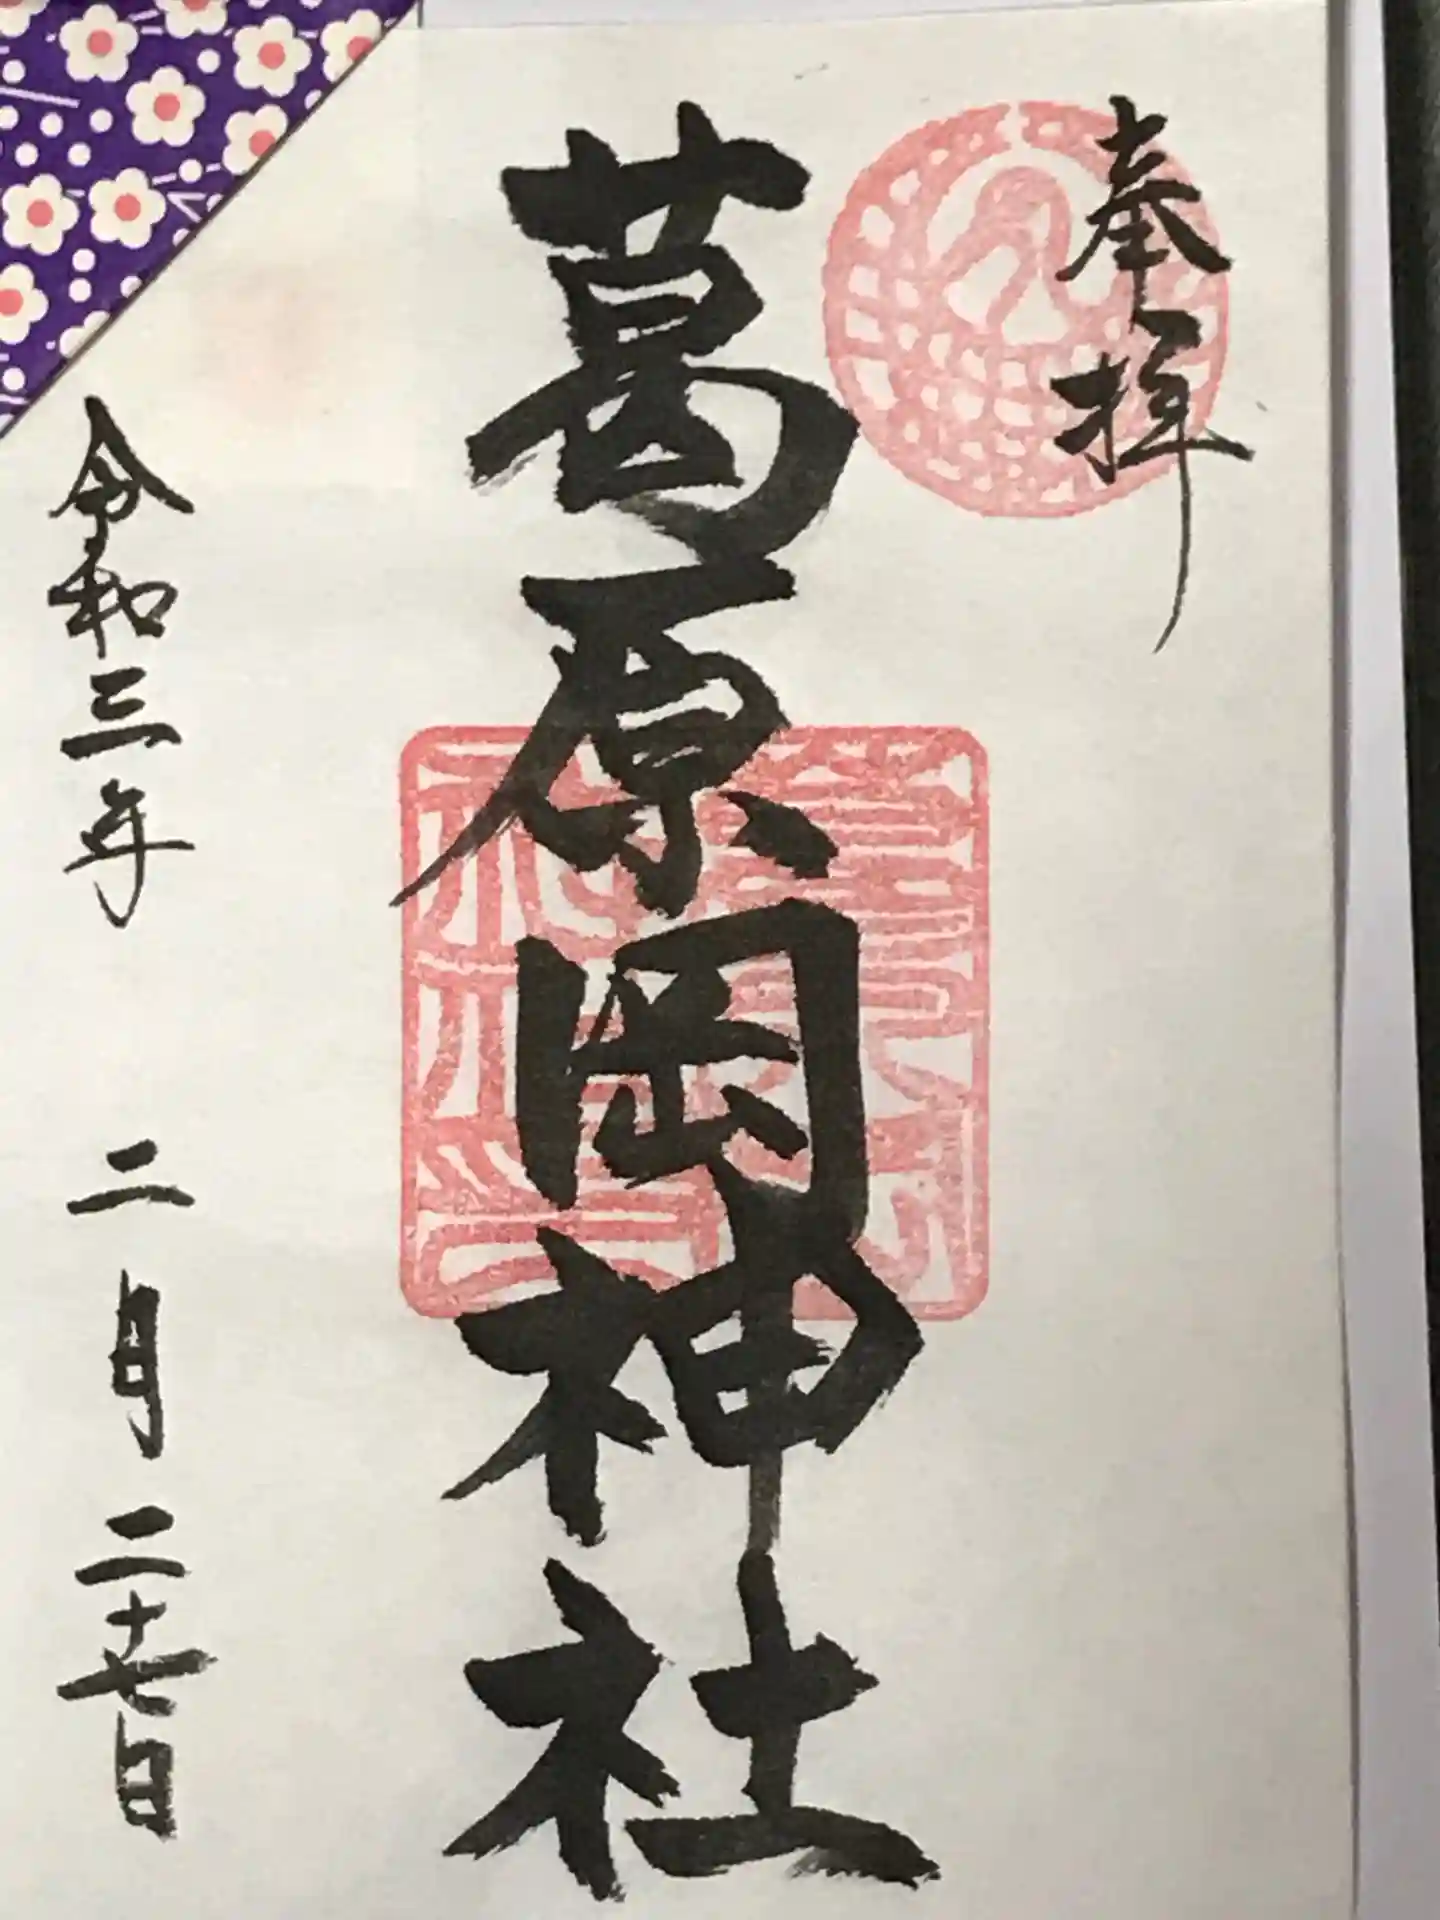 奉拝
葛原岡神社
令和三年 二月 二十七日